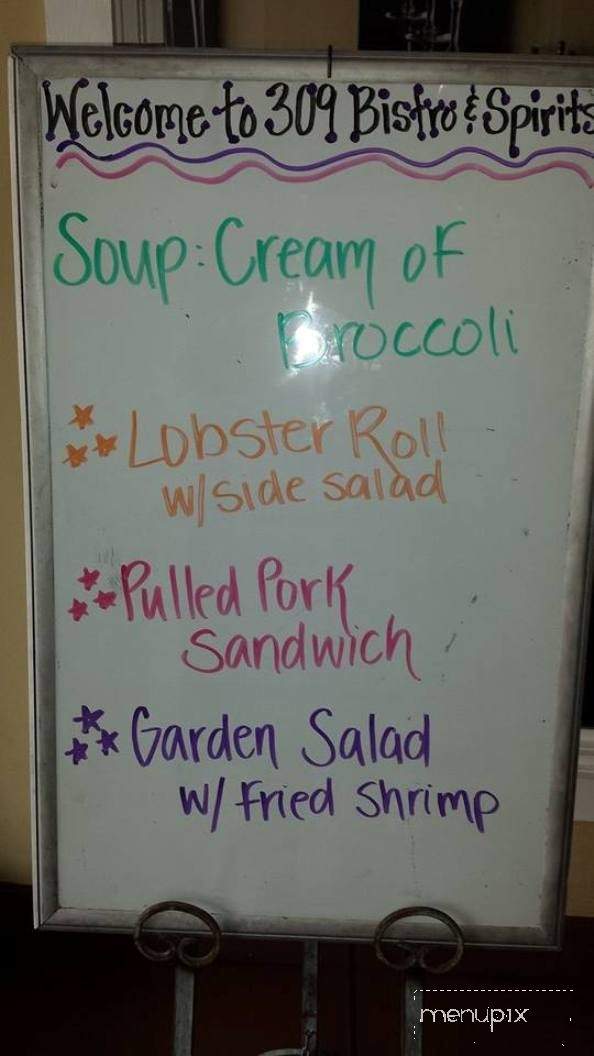 Welcome to 309 Bistro & Spirits
Soup: Cream of
Broccoli
Lobster Roll
w/side salad
Pulled Pork
Sandwich
Garden Salad
w/ Fried Shrimp
menupix